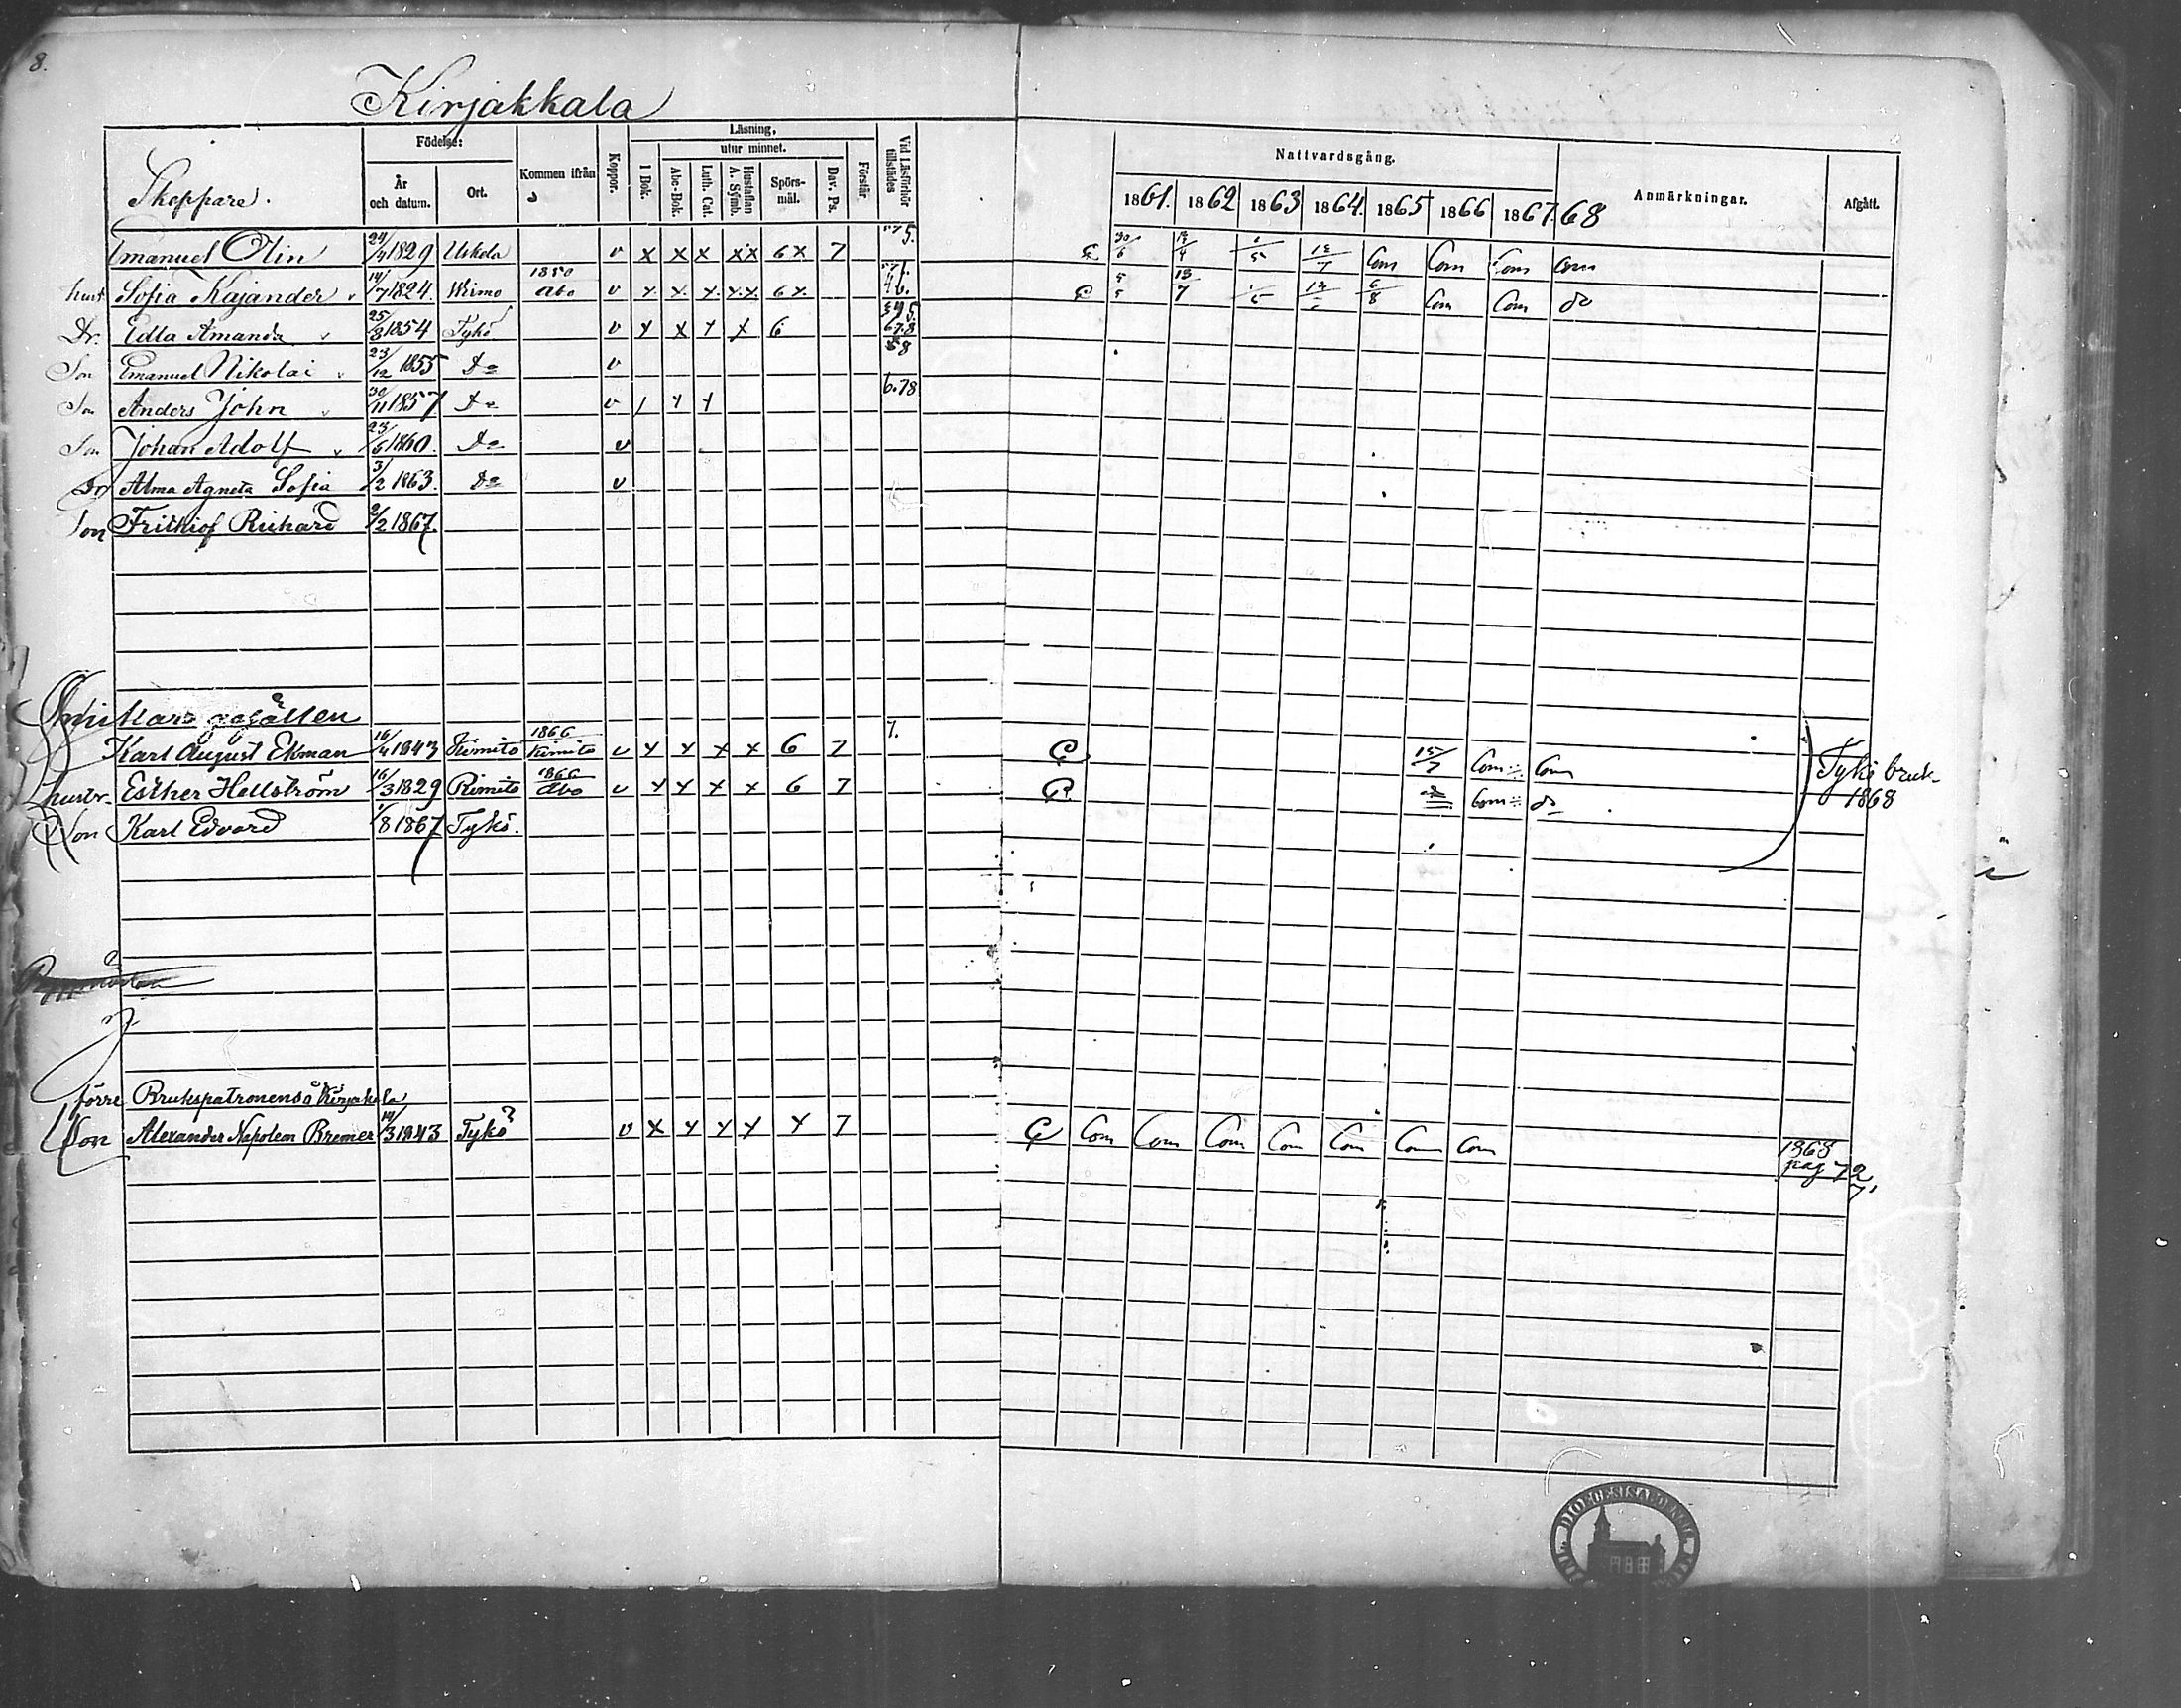 8.
Kirjakkala
Födelse: Kommen ifrån Koppor. Läsning, Vid Läsförhör tillstädes
År och datum. Ort. 1 Bok. utur minnet. Förstår
Abc-Bok. Luth. Cat. Hustaflan A. Symb. Spörs-mål. Dav. Ps.
Nattvardsgång. Anmärkningar. Afgått.
1861. 1862 1863 1864. 1865 1866 1867. 68
Skeppare.
Emanuel Olin 24/4 1829 Uskela v x x x x x 6 x 7 Com Com Com Com
hust. Sofia Kajander 14/7 1824. Wirmo 1850 Åbo v x x x x x 6 x 13/7 6/8 Com Com do
Dr. Edla Amanda 25/8 1854 Tykö v x x x x 6
Son Emanuel Nikolai 23/12 1855 Do v
Son Anders John 30/11 1857 Do v 6.78
Son Johan Adolf 23/6 1860. Do v
Dr Alma Agneta Sofia 3/2 1863. Do v
Son Frithiof Richard 2/2 1867.
Karl August Ekman 16/4 1843 Kimito 1866 Kimito v x x x x 6 7 7. 15/7 Com Com Tykö bruk
hustr. Esther Hellström 16/3 1829 Rimito 1866 Åbo v x x x x 6 7 do Com do 1868
Son Karl Edvard 1/8 1867 Tykö.
förre Brukspatronens å Kirjakala
Son Alexander Napoleon Bremer 14/3 1843 Tykö v x x x x x 7 Com Com Com Com Com Com Com 1868
pag 72